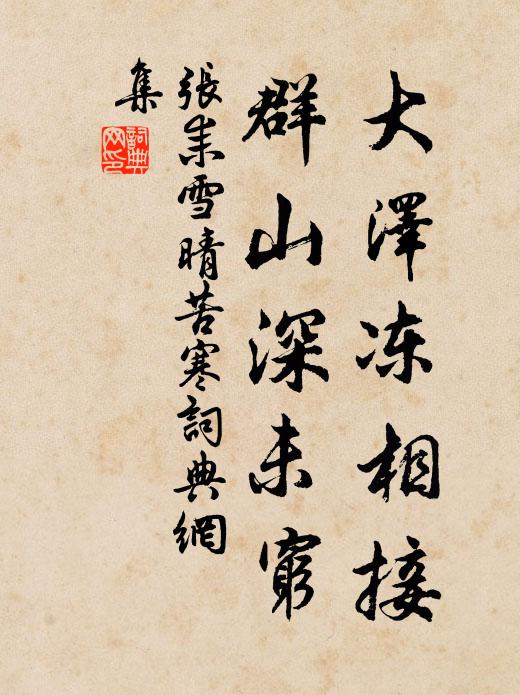 大澤冻相接
群山深未窮
張耒雪晴苦寒詞典網
集
詞典
网印